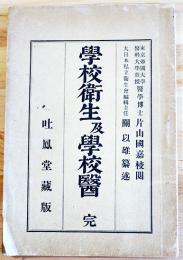 東京帝國大學
醫科大學教授 醫學博士 片山國嘉校閲
大日本私立衛生會編輯主任 關以雄纂述
學校衛生及學校醫 完
吐鳳堂藏版